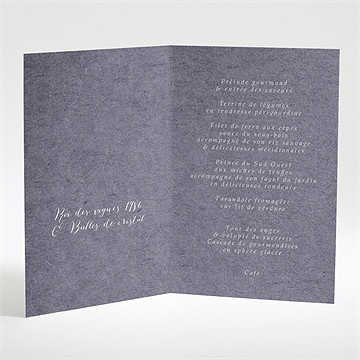 Bar des vignes 1986
& Bulles de cristal
Prélude gourmand
& entrée des saveurs
Terrine de légumes
en tendresse périgourdine
Filet de ferra aux cèpes
sauce du sous-bois
accompagné de son riz sauvage
& délicatesses méridionales
Prince du Sud-Ouest
aux miettes de truffes
accompagnée de son fagot du jardin
en délicieuses rondeurs
Farandole fromagère
sur lit de verdure
Tous des anges
& volupté de sucrerie
Cascade de gourmandises
en sphère glacée
Café